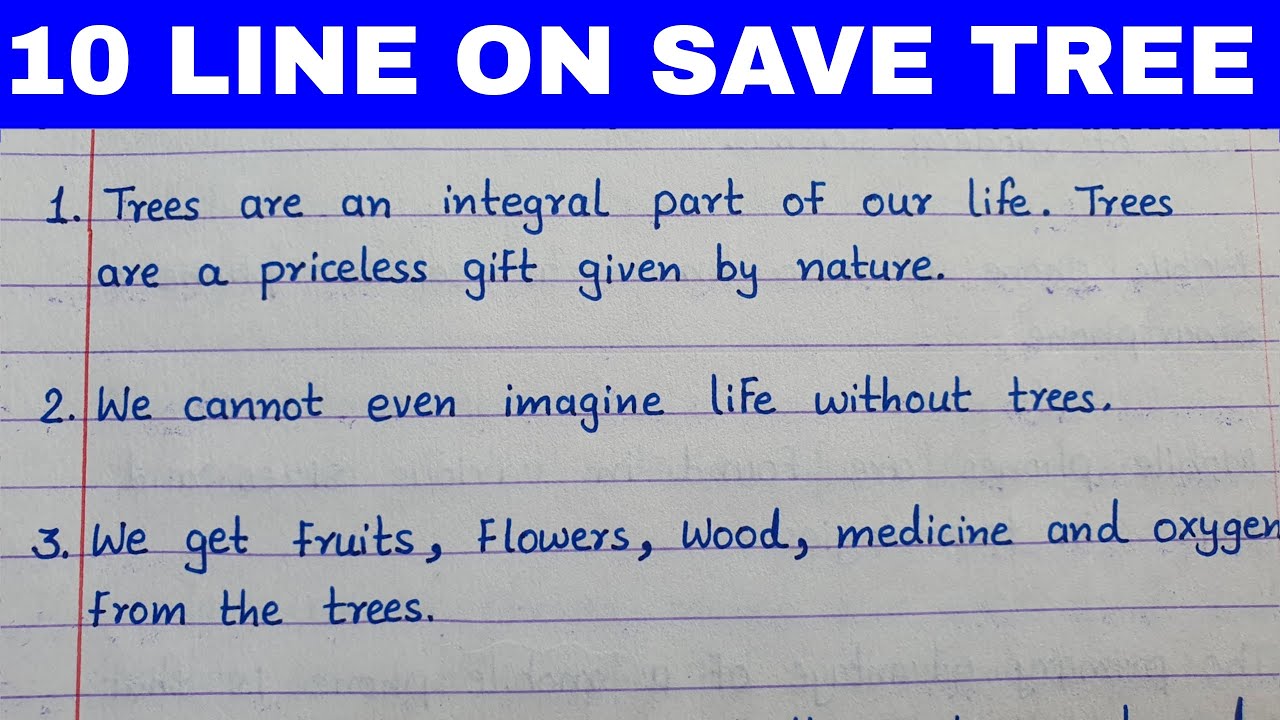 10 LINE ON SAVE TREE
1. Trees are an integral part of our life. Trees
are a priceless gift given by nature.
2. We cannot even imagine life without trees.
3. We get fruits, Flowers, Wood, medicine and oxygen
from the trees.